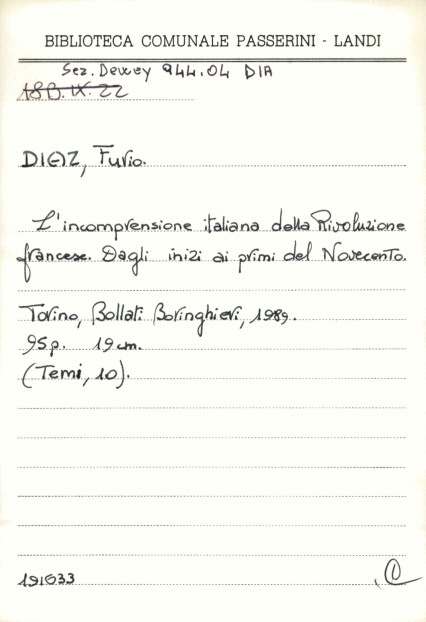 BIBLIOTECA COMUNALE PASSERINI - LANDI
Sez. Dewey 944.04 DIA
18B.IX.22
DIAZ, Furio.
L'incomprensione italiana della Rivoluzione
francese. Dagli inizi ai primi del Novecento.
Torino, Bollati Boringhieri, 1989.
95p. 19 cm.
(Temi, 10).
191633